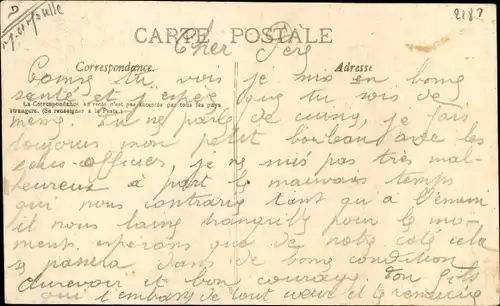 D
2187
CARTE POSTALE
Cher Père
Correspondance.
Adresse
Comme tu vois je suis en bonne
santé et j'espère que tu sois de
La Correspondance au recto n'est pas acceptée par tous les pays
étrangers. (Se renseigner à la Poste.)
même. Tu me parle de je fais
toujours mon petit bouleau avec les
sous-officiers, je ne suis pas très mal-
heureux à part le mauvais temps
qui nous contrarie tant qu a l'ennemi
il nous laisse tranquille pour le mo-
ment. espérons que de notre coté cela
se passera dans de bonne condition
aurevoir et bon courage. Ton fils
qui t'embrasse de tout cœur et